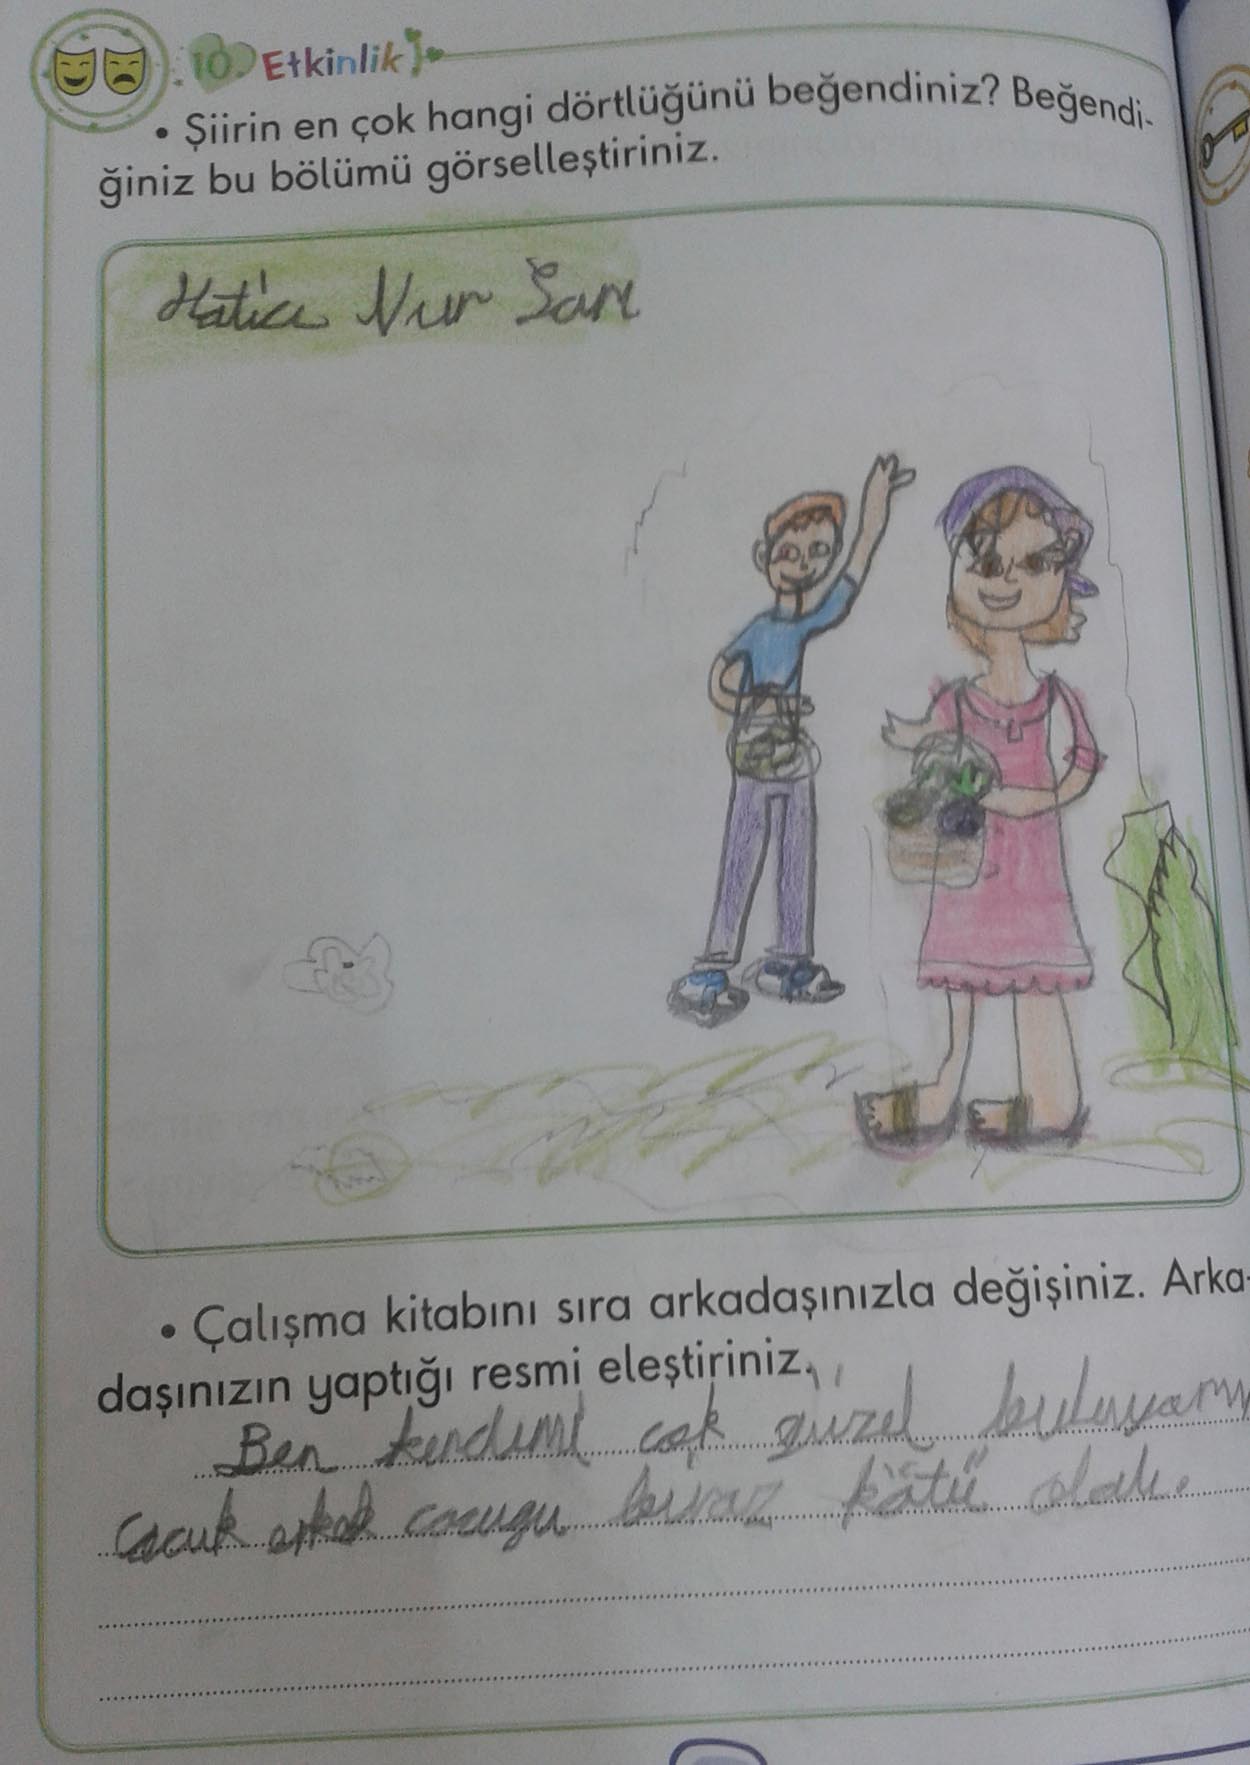 10. Etkinlik
• Şiirin en çok hangi dörtlüğünü beğendiniz? Beğendi-
ğiniz bu bölümü görselleştiriniz.
Hatice Nur Sarı
• Çalışma kitabını sıra arkadaşınızla değişiniz. Arka-
daşınızın yaptığı resmi eleştiriniz.
Ben kendimi çok güzel buluyorum
Çocuk erkek cocugu biraz kötü oldu.